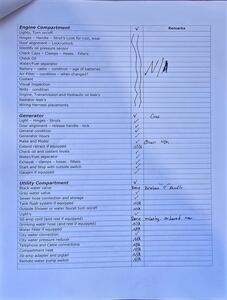 Engine Compartment ✓ Remarks
Lights, Turn on/off
Hinges - Handle - Strut's-Look for cost, wear
Door alignment - Lock/unlock
Identify oil pressure sensor
Check Caps - Clamps - Hoses - Filters
Check Oil
Water/Fuel separator N/A
Battery - cable - condition - age of batteries
Air Filter - condition - when changed?
Coolant
Visual Inspection
Belts - condition
Engine, Transmission and Hydraulic oil leak's
Radiator leak's
Wiring Harness placements
Generator ✓
Light - Hinges - Struts ✓
Door alignment - release handle - lock ✓
General condition ✓
Generator Hours ✓
Make and Model ✓
Extend retract if equipped N/A
Check oil and coolant levels ✓
Water/Fuel separator ✓
Exhaust - clamps - hoses - filters ✓
Start and Stop with outside switch ✓
Gauges if equipped ✓
Utility Compartment
Black water valve
Gray water valve ✓
Sewer hose connection and storage ✓
Tank flush system if equipped N/A
Outside Shower or water faucet turn on/off N/A
Lighting ✓
50-amp cord (and reel if equipped) missing
Drinking water hose (and reel if equipped) N/A
Water Filter if equipped
City water connection ✓
City water pressure reducer N/A
Telephone and Cable connections N/A
Compartment heat N/A
30-amp adapter and pigtail N/A
Remote water pump switch N/A